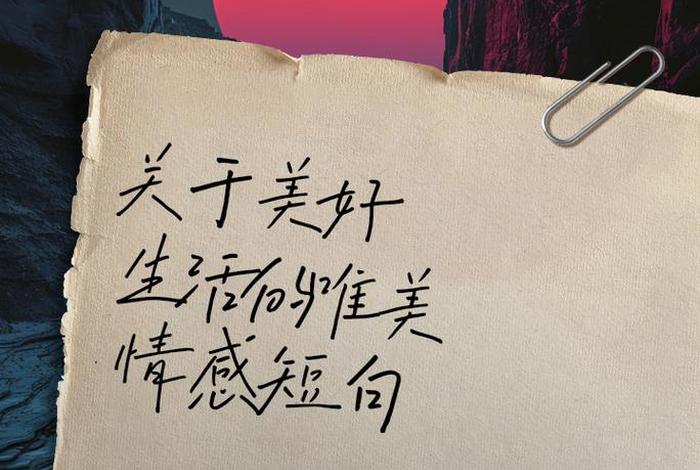 关于美好
生活的唯美
情感短句